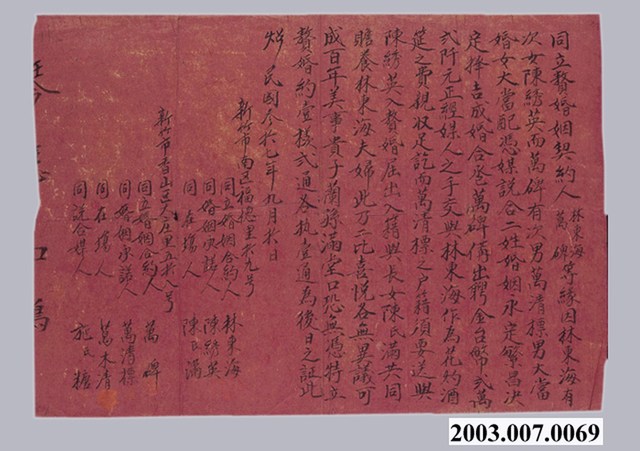 同立贅婚姻契約人林東海萬碑等緣因林東海有
次女陳綉英而萬碑有次男萬清標男大當
婚女大當配憑媒說合二姓婚姻永定繁昌決
定擇吉成婚合丞萬碑備出聘金台幣弍萬
弍仟元正經媒人之手交與林東海作為花灼酒
筵之費親收足訖而萬清標之戶籍須要送與
陳綉英入贅婚居出入籍與長女陳氏滿共同
贍養林東海夫婦此乃二比喜悅各無異議可
成百年美事貴子蘭孫滿堂口恐無憑特立
贅婚約壹樣弍通各执壹通為後日之証此
炤民國今拾七年九月拾日
新竹市南区福德里六九号
同立婚姻合約人 林東海
同婚姻承諾人 陳綉英
同在場人 陳氏滿
新竹市香山区
同立婚姻合約人 萬碑
同婚姻承諾人 萬清標
同在場人 萬木清
同說合媒人 施氏糖
2003.007.0069